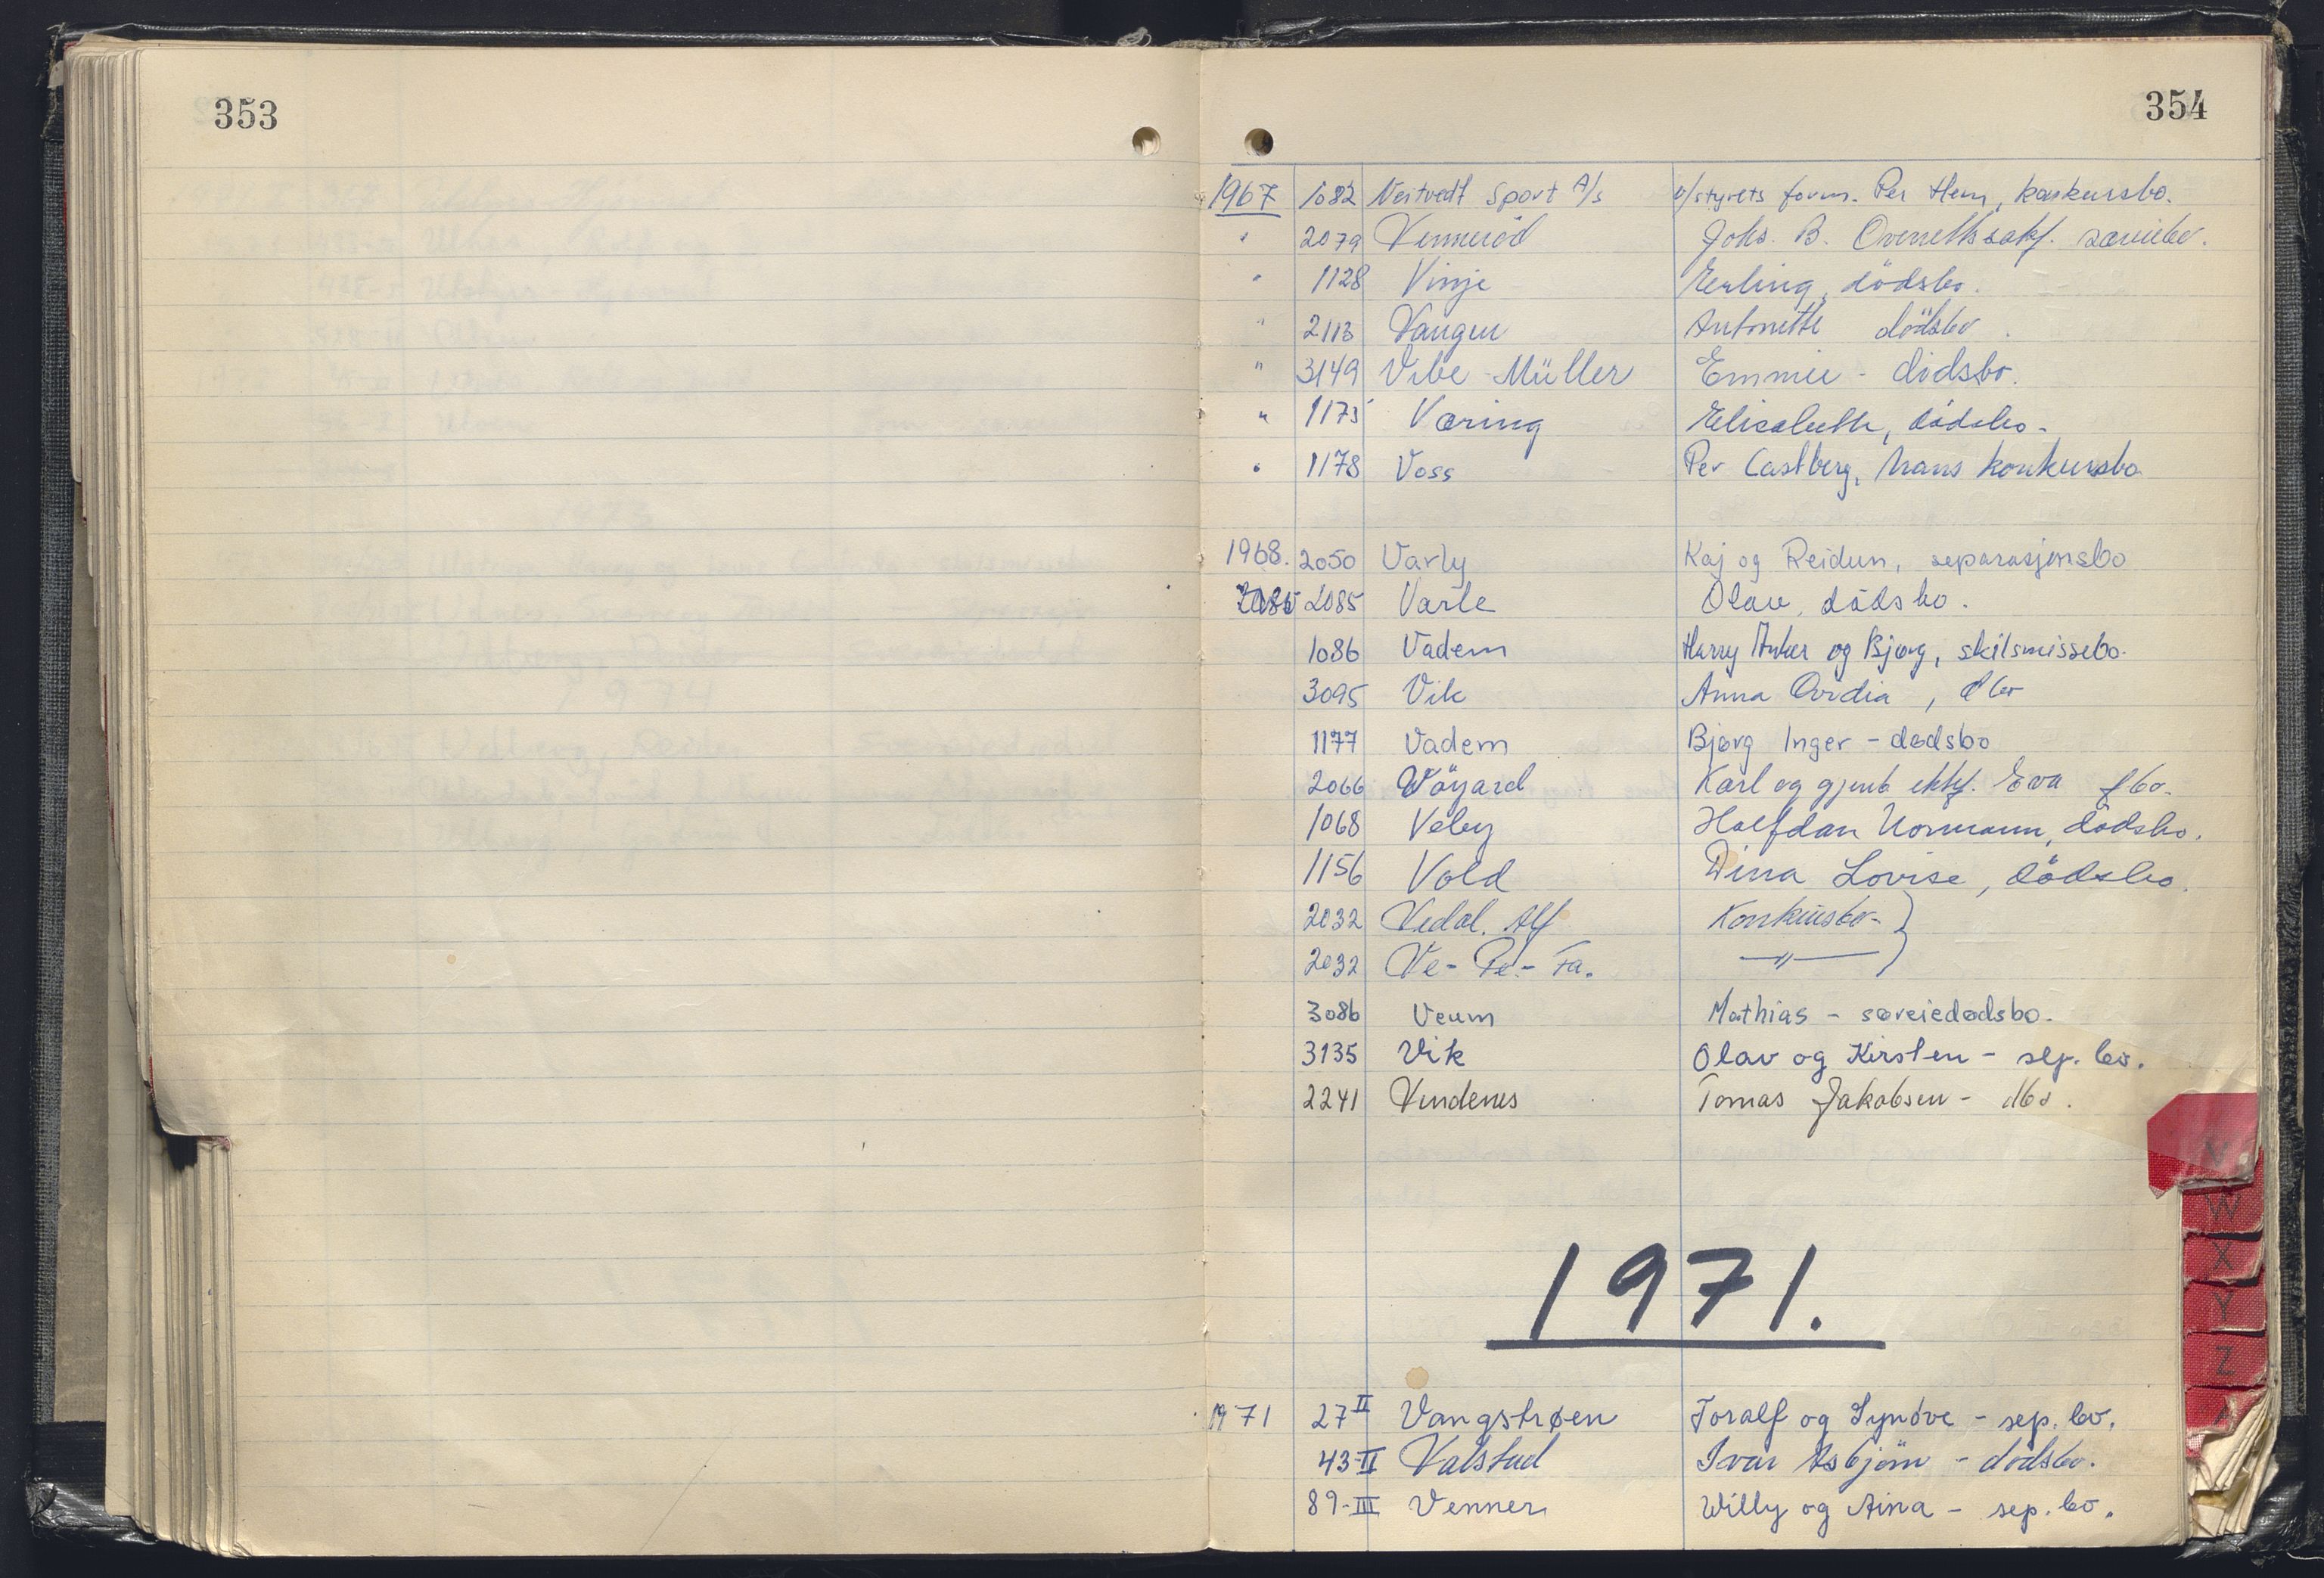 353
354
1967 1082 Veitvedt Sport A/s v/styrets form. Per Hem, konkursbo.
" 2079 Venneröd Johs. B. Overrettssakf. særeiebo.
" 1128 Vinje Erling, dödsbo.
" 2113 Vangen Antonette dödsbo.
" 3149 Vibe-Müller Emmie - dödsbo.
" 1175 Væring Elisabeth, dödsbo.
" 1178 Voss Per Castberg, hans konkursbo
1968. 2050 Varly Kaj og Reidun, separasjonsbo
2085 2085 Varle Olav, dödsbo.
1086 Vadem Harry Anker og Bjørg, skilsmissebo.
3095 Vik Anna Ovidia, dbo
1177 Vadem Bjørg Inger - dødsbo
2066 Vöyard Karl og gjenl. ektf. Eva fbo.
1068 Veby Halfdan Normann, dødsbo.
1156 Vold Dina Lovise, dödsbo.
2032 Vedal. Alf Konkursbo -
2032 Ve-Pe-Fa. —"—
3086 Veum Mathias - særeiedødsbo.
3135 Vik Olav og Kirsten - sep. bo.
2241 Vindenes Tomas Jakobsen - dbo.
1971.
1971 27 II Vangstrøen Toralf og Synöve - sep. bo.
43-II Valstad Ivar Asbjörn - dödsbo.
89-III Venner Willy og Aina - sep. bo.
V
W
X
Y
Z